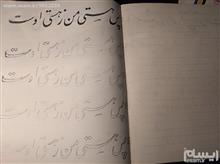 پس هستی من ز هستی اوست
هستی من ز هستی اوست
پس هستی من ز هستی اوست
پس هستی من ز هستی اوست
پس هستی من ز هستی اوست
ایسام